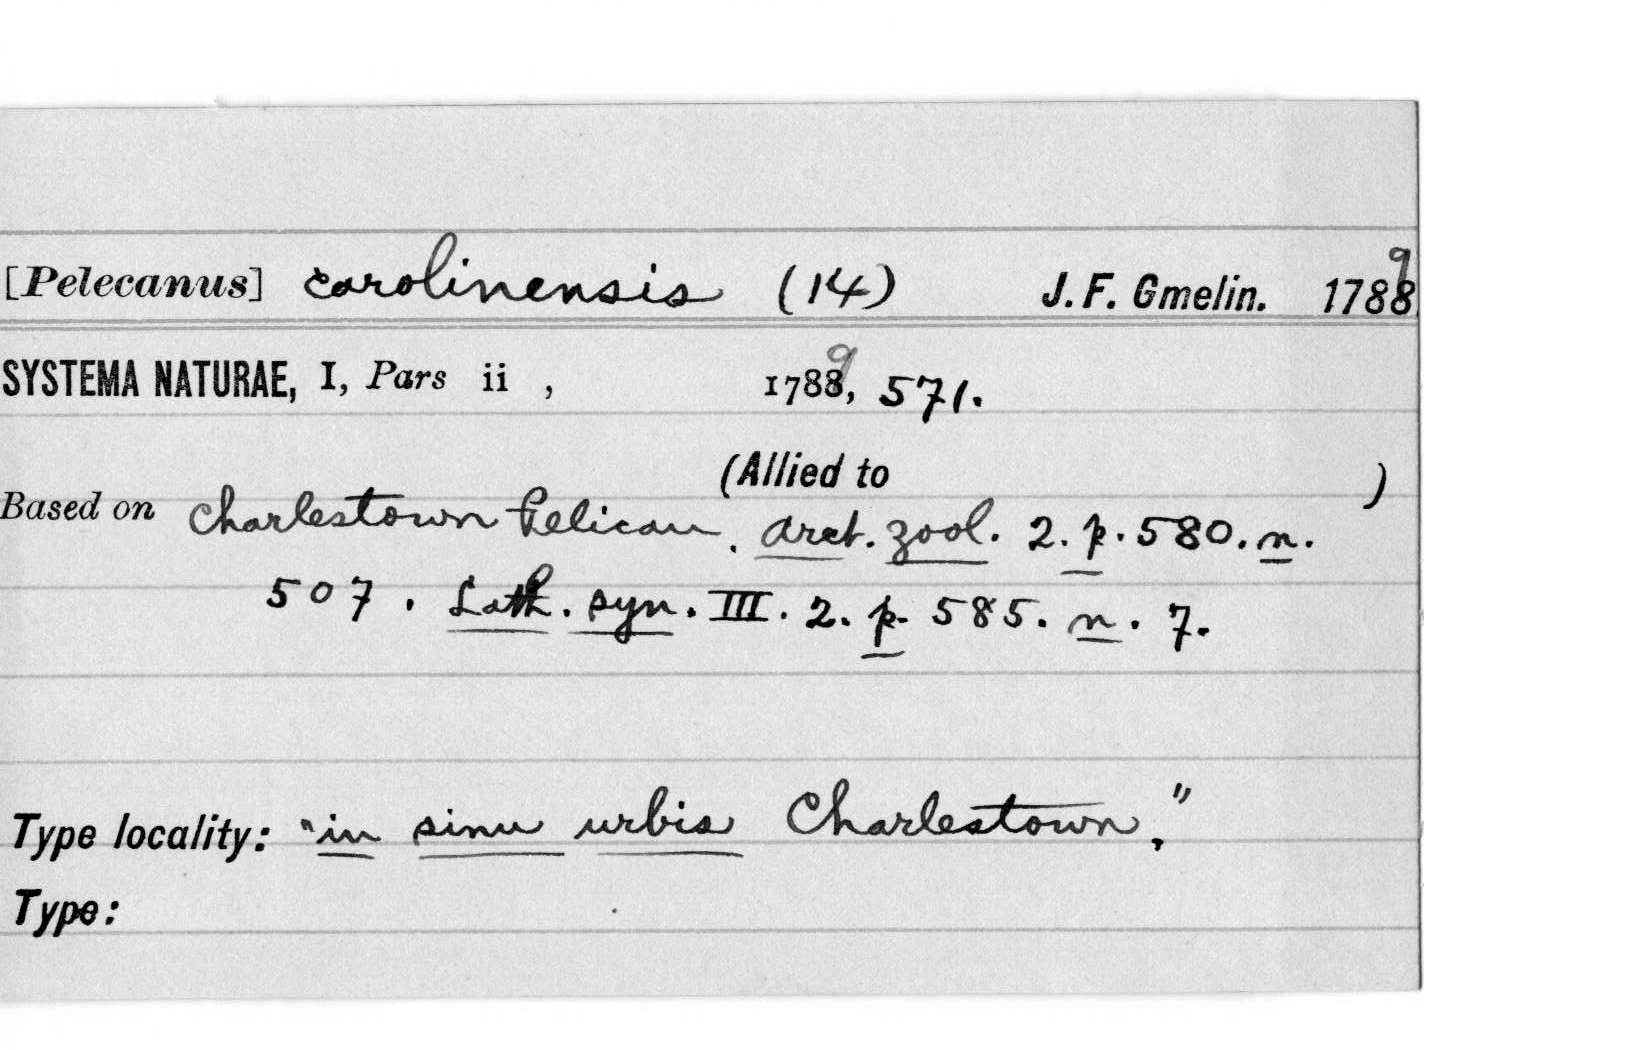 [Pelecanus] carolinensis (14) J. F. Gmelin. 1788 9
SYSTEMA NATURAE, I, Pars ii , 1788 9, 571.
(Allied to )
Based on Charlestown Pelican. Arct. zool. 2. p. 580. n.
507. Lath. syn. III. 2. p. 585. n. 7.
Type locality: "in sinu urbis Charlestown,"
Type: